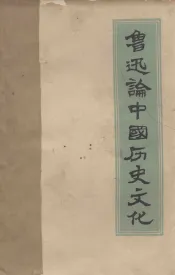 鲁迅論中國历史文化